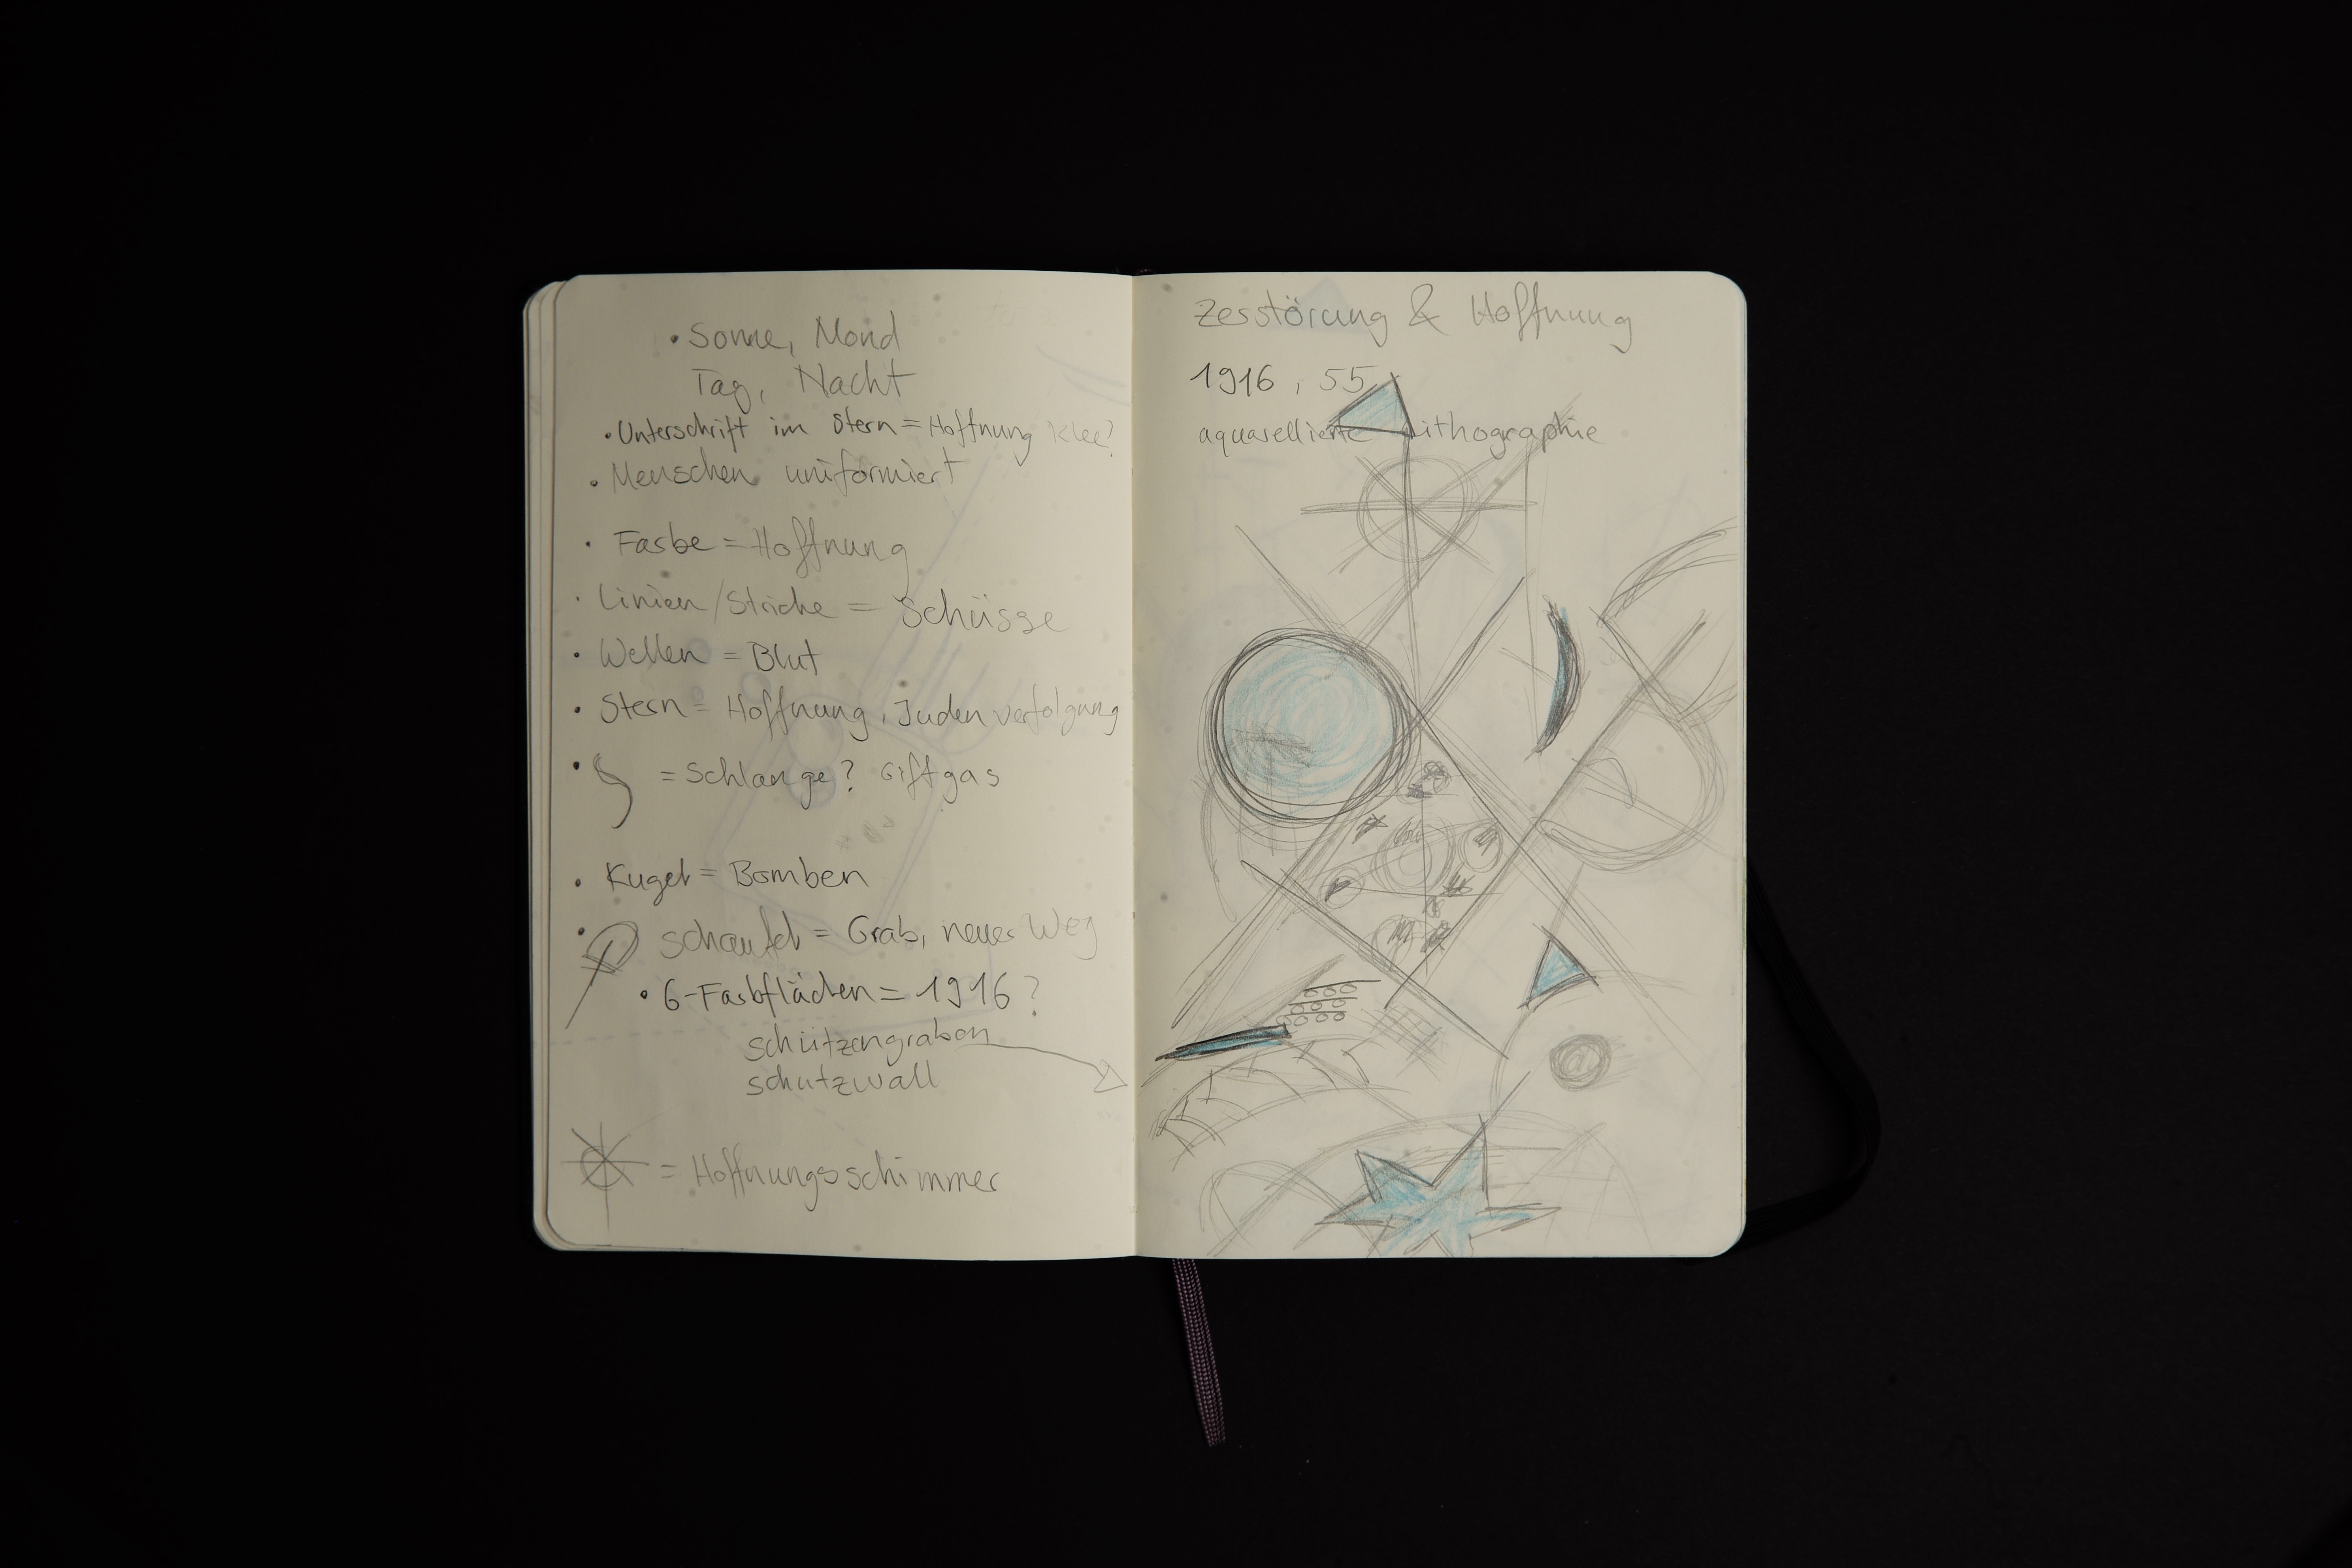 • Sonne, Mond
Tag, Nacht
• Unterschrift im Stern = Hoffnung Klee?
• Menschen uniformiert
• Farbe = Hoffnung
• Linien/Striche = Schüsse
• Wellen = Blut
• Stern = Hoffnung, Judenverfolgung
• = Schlange? Giftgas
• Kugel = Bomben
• Schaufel = Grab, neuer Weg
• 6-Farbflächen = 1916?
Schützengraben
Schutzwall
= Hoffnungsschimmer
Zerstörung & Hoffnung
1916, 55
aquarellierte Lithographie